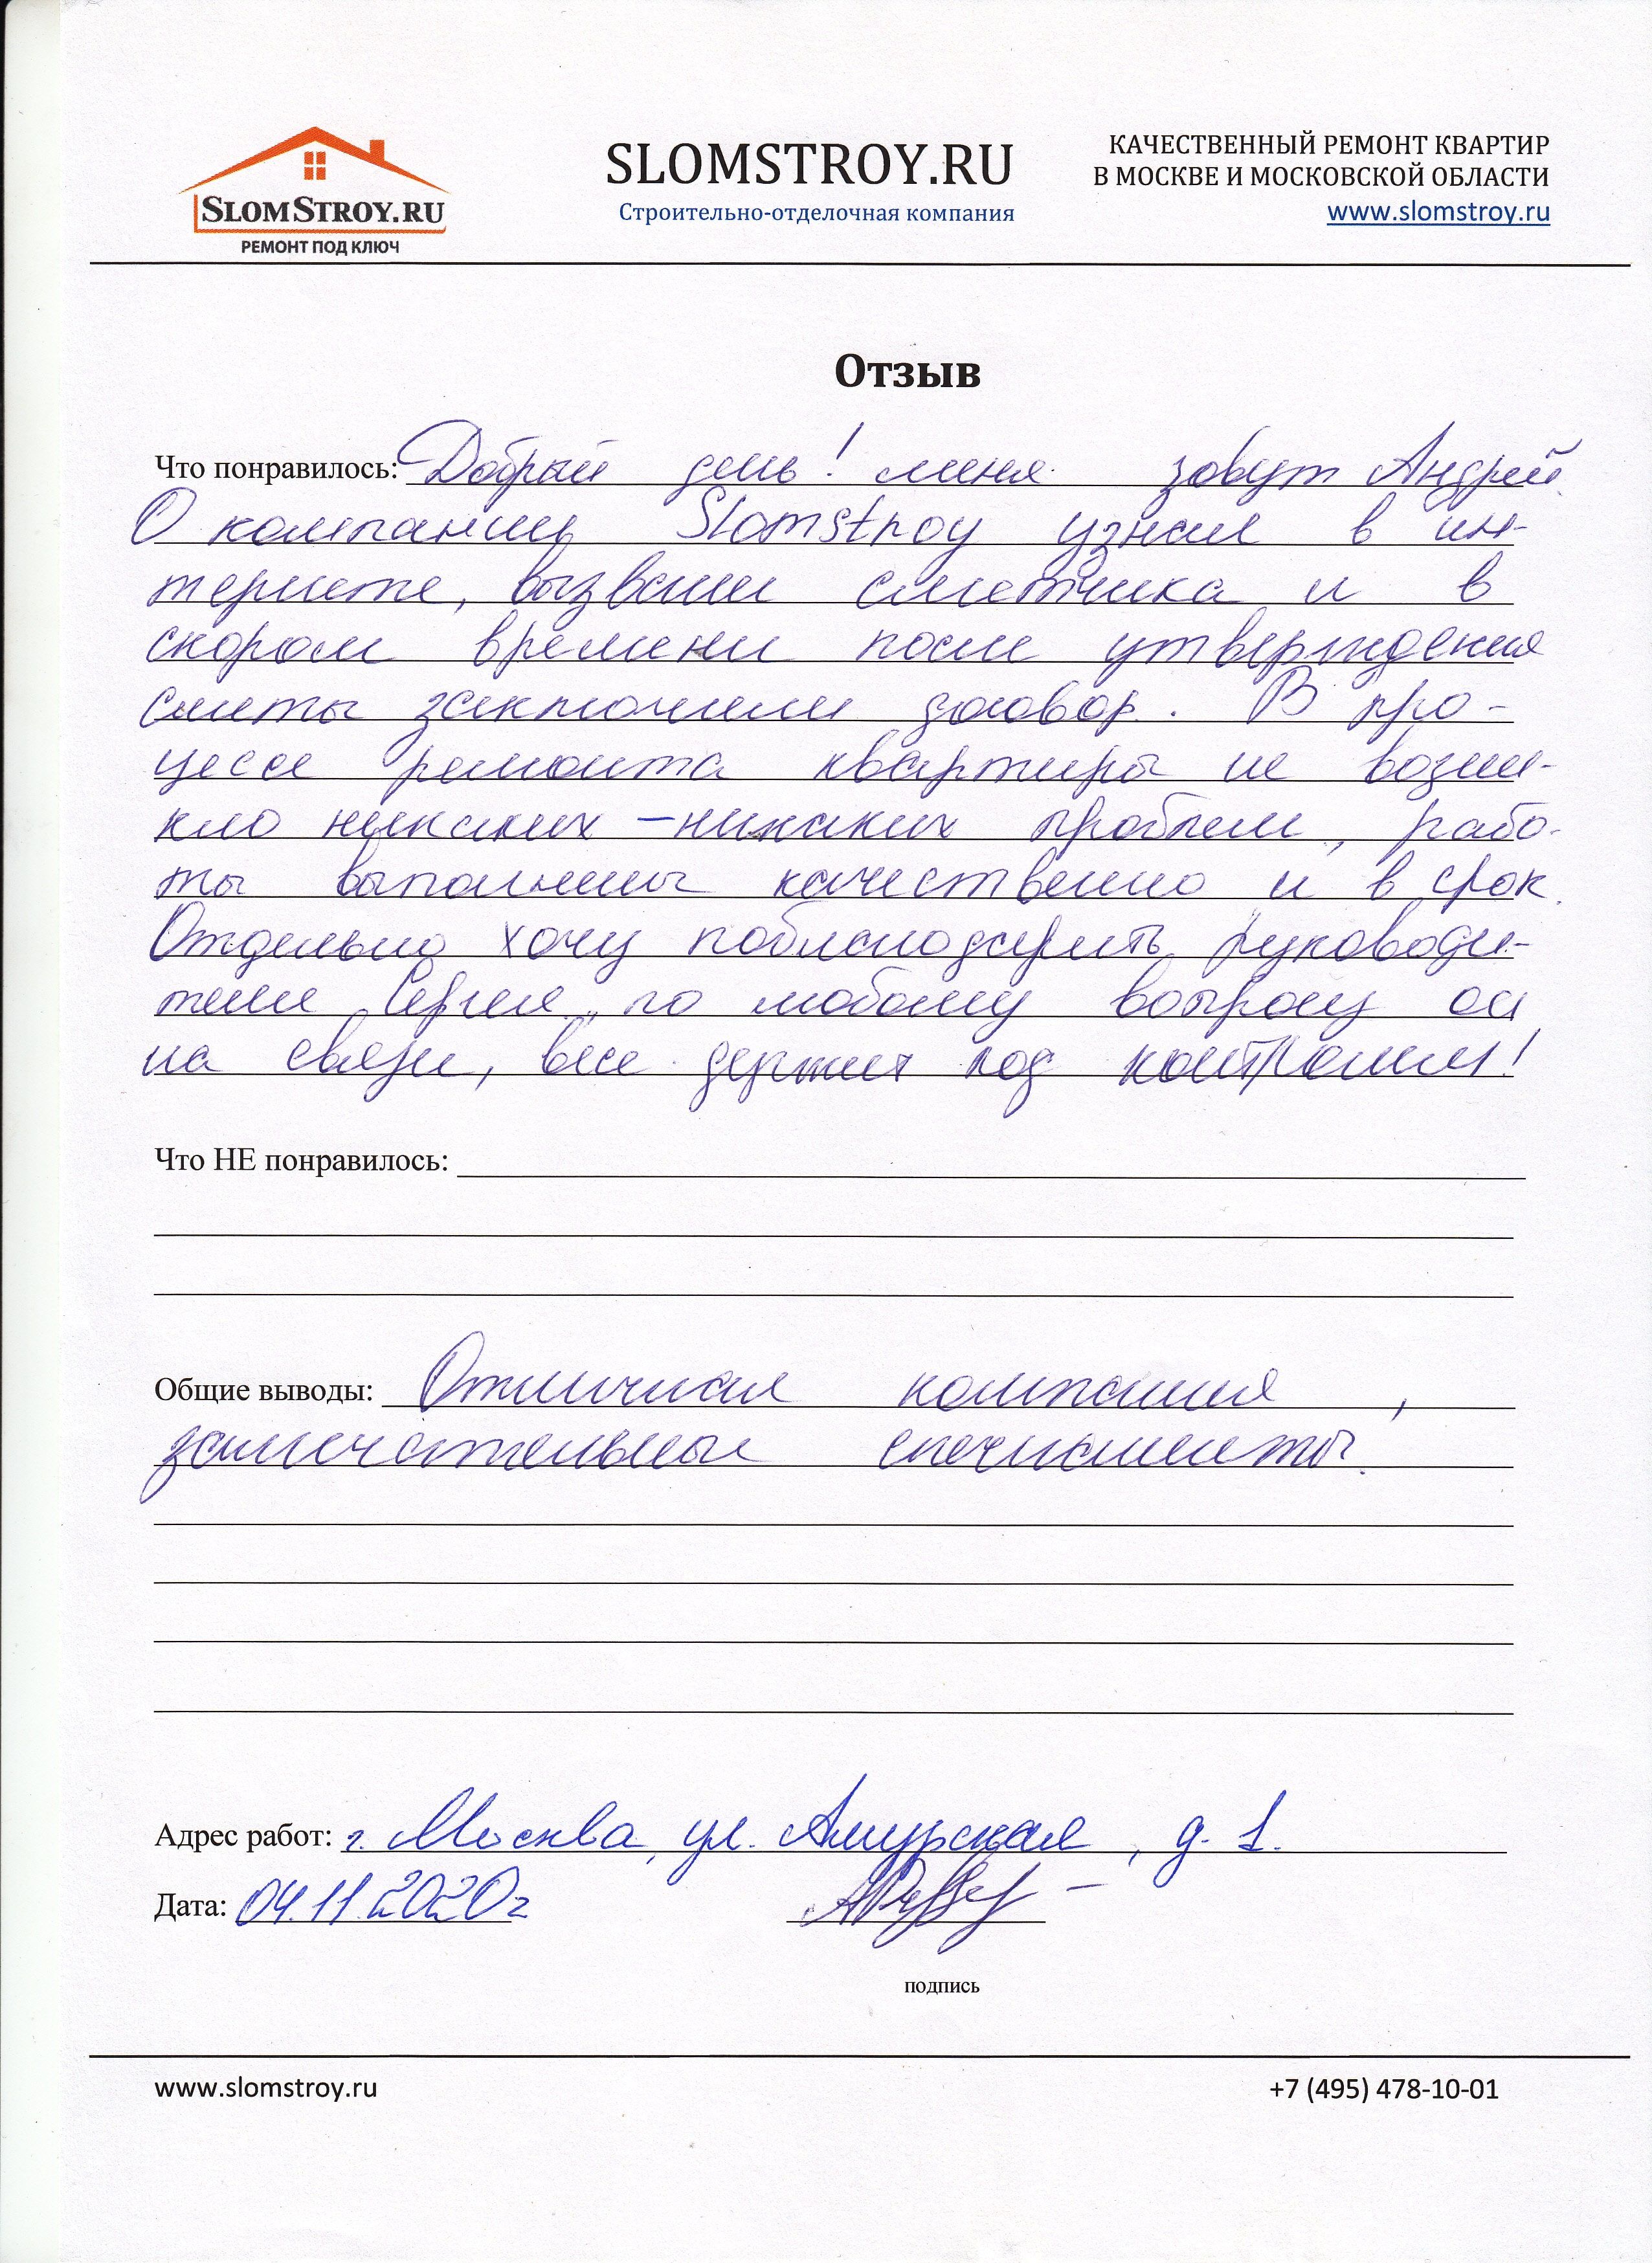 SLOMSTROY.RU
РЕМОНТ ПОД КЛЮЧ
SLOMSTROY.RU
Строительно-отделочная компания
КАЧЕСТВЕННЫЙ РЕМОНТ КВАРТИР
В МОСКВЕ И МОСКОВСКОЙ ОБЛАСТИ
www.slomstroy.ru
Отзыв
Что понравилось: Добрый день! меня зовут Андрей.
О компании Slomstroy узнал в ин-
тернете, вызвали сметчика и в
скором времени после утверждения
сметы заключили договор. В про-
цессе ремонта квартиры не возни-
кло никаких - никаких проблем, рабо-
ты выполнены качественно и в срок.
Отдельно хочу поблагодарить руководи-
теля Сергея, по любому вопросу он
на связи, все держит под контролем!
Что НЕ понравилось:
Общие выводы: Отличная компания,
замечательные специалисты.
Адрес работ: г. Москва, ул. Амурская, д. 1.
Дата: 04.11.2020г
подпись
www.slomstroy.ru
+7 (495) 478-10-01